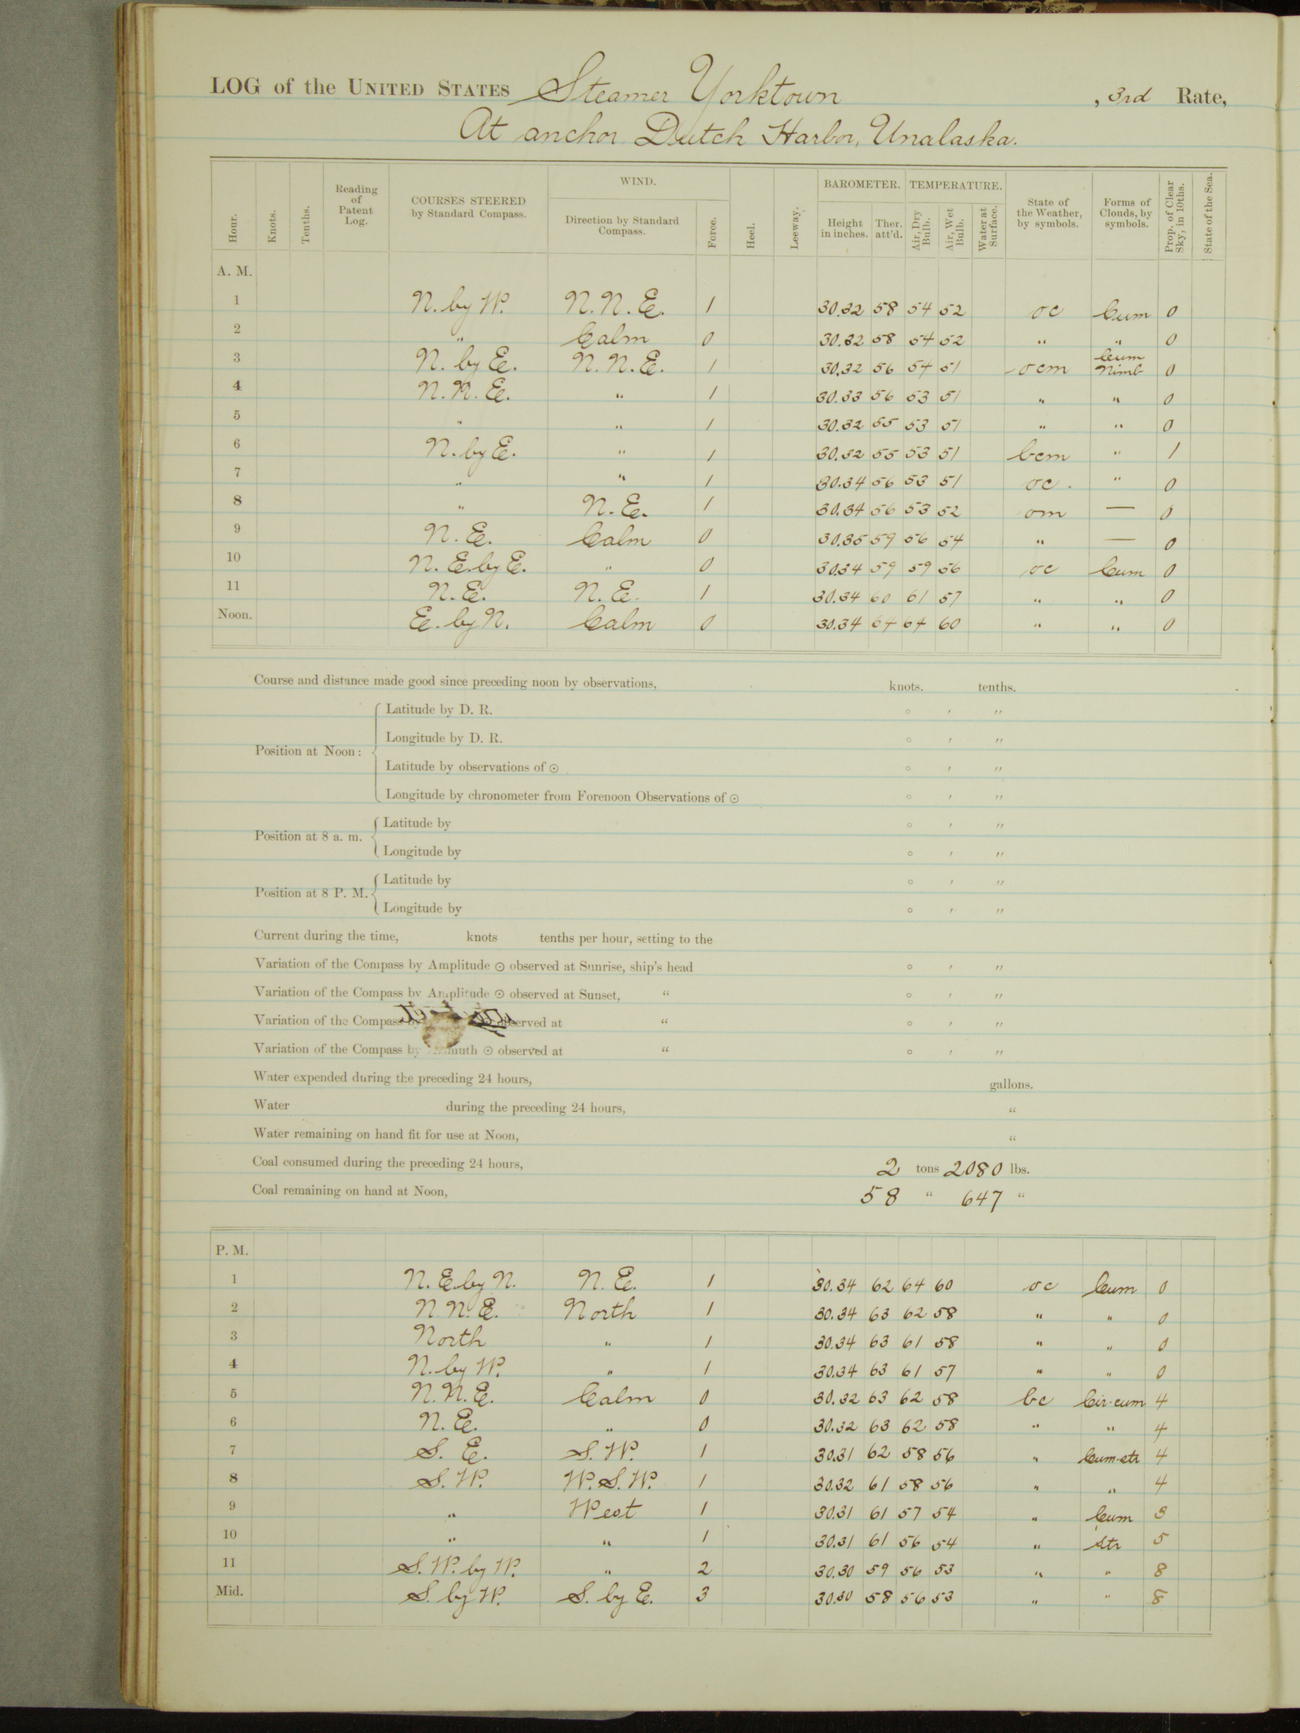 LOG of the UNITED STATES Steamer Yorktown , 3rd Rate,
At anchor Dutch Harbor, Unalaska.
Hour. Knots. Tenths. Reading of Patent Log. COURSES STEERED by Standard Compass. WIND. Direction by Standard Compass. Force. Heel. Leeway. BAROMETER. Height in inches. Ther. att'd. TEMPERATURE. Air, Dry Bulb. Air, Wet Bulb. Water at Surface. State of the Weather, by symbols. Forms of Clouds, by symbols. Prop. of Clear Sky, in 10ths. State of the Sea.
A. M.
1 N. by W. N.N.E. 1 30.32 58 54 52 oc Cum 0
2 " Calm 0 30.32 58 54 52 " " 0
3 N. by E. N.N.E. 1 30.32 56 54 51 ocm Cum Nimb 0
4 N.N.E. " 1 30.33 56 53 51 " " 0
5 " " 1 30.32 55 53 51 " " 0
6 N. by E. " 1 30.32 55 53 51 bcm " 1
7 " " 1 30.34 56 53 51 oc. " 0
8 " N.E. 1 30.34 56 53 52 om — 0
9 N.E. Calm 0 30.35 59 56 54 " — 0
10 N.E. by E. " 0 30.34 59 59 56 oc Cum 0
11 N.E. N.E. 1 30.34 60 61 57 " " 0
Noon. E. by N. Calm 0 30.34 64 64 60 " " 0
Course and distance made good since preceding noon by observations, knots. tenths.
Position at Noon: Latitude by D. R. ° ′ ″
Longitude by D. R. ° ′ ″
Latitude by observations of ☉ ° ′ ″
Longitude by chronometer from Forenoon Observations of ☉ ° ′ ″
Position at 8 a. m. Latitude by ° ′ ″
Longitude by ° ′ ″
Position at 8 P. M. Latitude by ° ′ ″
Longitude by ° ′ ″
Current during the time, knots tenths per hour, setting to the
Variation of the Compass by Amplitude ☉ observed at Sunrise, ship's head ° ′ ″
Variation of the Compass by Amplitude ☉ observed at Sunset, " ° ′ ″
Variation of the Compass observed at " ° ′ ″
Variation of the Compass by Azimuth ☉ observed at " ° ′ ″
Water expended during the preceding 24 hours, gallons.
Water during the preceding 24 hours, "
Water remaining on hand fit for use at Noon, "
Coal consumed during the preceding 24 hours, 2 tons 2080 lbs.
Coal remaining on hand at Noon, 58 " 647 "
P. M.
1 N.E. by N. N.E. 1 30.34 62 64 60 oc Cum 0
2 N.N.E. North 1 30.34 63 62 58 " " 0
3 North " 1 30.34 63 61 58 " " 0
4 N. by W. " 1 30.34 63 61 57 " " 0
5 N.N.E. Calm 0 30.32 63 62 58 bc Cir-cum 4
6 N.E. " 0 30.32 63 62 58 " " 4
7 S.E. S.W. 1 30.31 62 58 56 " Cum-str 4
8 S.W. W.S.W. 1 30.32 61 58 56 " " 4
9 " West 1 30.31 61 57 54 " Cum 3
10 " " 1 30.31 61 56 54 " Str 5
11 S.W. by W. " 2 30.30 59 56 53 " " 8
Mid. S. by W. S. by E. 3 30.30 58 56 53 " " 8